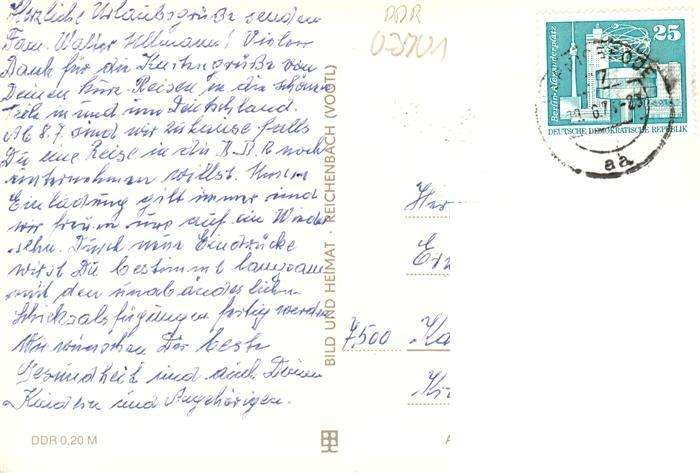 Herzliche Urlaubsgrüße senden
Fam. Walter Ullmann! Vielen
Dank für die Kartengrüße von
Deinen Reisen in die schönen
Teile in und um Deutschland.
Ab 8.7. sind wir zuhause falls
Du eine Reise in die D.D.R noch
unternehmen willst. Unsere
Einladung gilt immer und
wir freuen uns auf ein Wieder
sehn. Durch neue Eindrücke
wirst Du bestimmt langsam
mit den unabänderlichen
Schicksalsfügungen fertig werden
Wir wünschen Dir beste
Gesundheit und auch Deinen
Kindern und Angehörigen.
DDR 0,20 M
BILD UND HEIMAT · REICHENBACH (VOGTL)
DDR
Her
7500 Ka
25
Berlin-Alexanderplatz
DEUTSCHE DEMOKRATISCHE REPUBLIK
aa